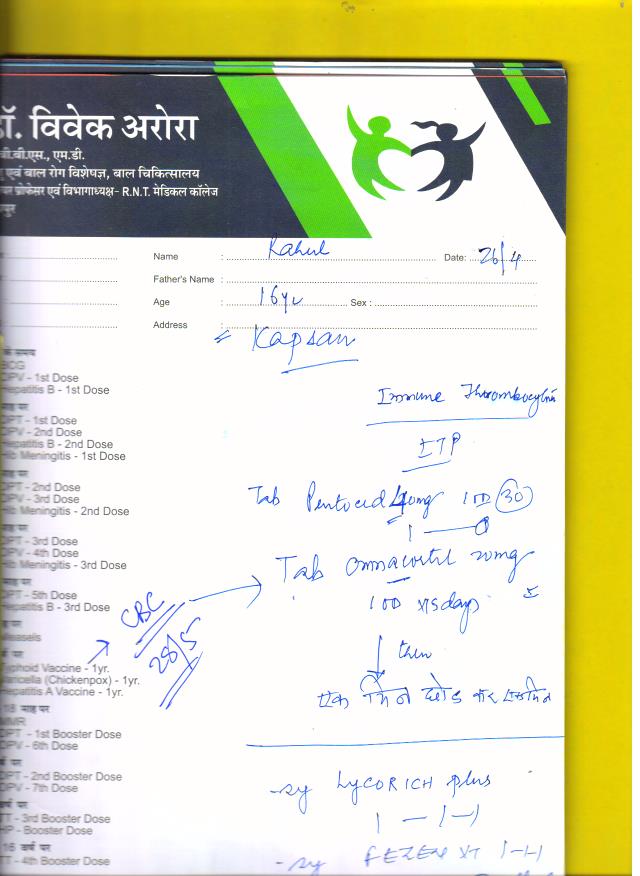 डॉ. विवेक अरोरा
बी.बी.एस., एम.डी.
एवं बाल रोग विशेषज्ञ, बाल चिकित्सालय
प्रोफेसर एवं विभागाध्यक्ष- R.N.T. मेडिकल कॉलेज
पुर
Name : Rahul Date: 26/4
Father's Name :
Age : 16 yr Sex :
Address : Kapsan
के समय
BCG
OPV - 1st Dose
Hepatitis B - 1st Dose
Immune
ITP
माह पर
DPT - 1st Dose
OPV - 2nd Dose
Hepatitis B - 2nd Dose
Hib Meningitis - 1st Dose
माह पर
DPT - 2nd Dose
OPV - 3rd Dose
Hib Meningitis - 2nd Dose
Tab 40mg 1OD 30
1 — 0
माह पर
DPT - 3rd Dose
OPV - 4th Dose
Hib Meningitis - 3rd Dose
Tab Omnacortil mg
1OD x15 days
माह पर
DPT - 5th Dose
Hepatitis B - 3rd Dose
CBC
28/5
माह पर
Measels
then
वर्ष पर
Typhoid Vaccine - 1yr.
Varicella (Chickenpox) - 1yr.
Hepatitis A Vaccine - 1yr.
एक दिन छोड़ कर एक दिन
18 माह पर
MMR
DPT - 1st Booster Dose
OPV - 6th Dose
वर्ष पर
DPT - 2nd Booster Dose
OPV - 7th Dose
- sy LYCORICH plus
1 — 1 — 1
वर्ष पर
TT - 3rd Booster Dose
HP - Booster Dose
16 वर्ष पर
TT - 4th Booster Dose
- sy XT 1-1-1